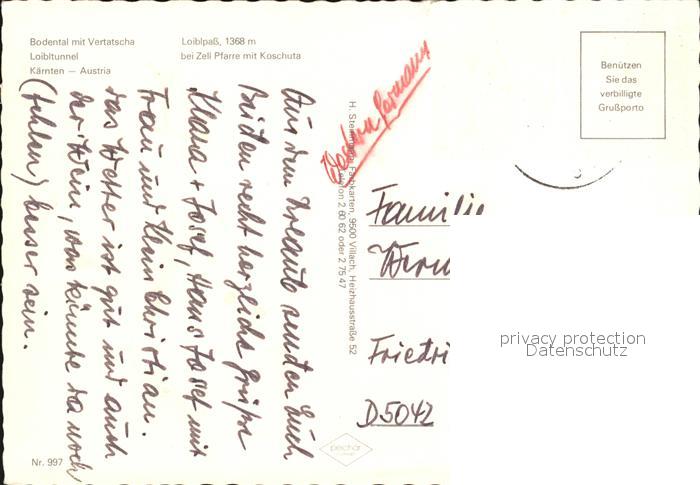 Bodental mit Vertatscha
Loibltunnel
Kärnten — Austria
Loiblpaß, 1368 m
bei Zell Pfarre mit Koschuta
Benützen
Sie das
verbilligte
Grußporto
Aus dem Urlaub senden Euch
Beiden recht herzliche Grüße
Klara + Josef, Hans Josef mit
Frau und Klein Christian.
Das Wetter ist gut und auch
der Wein, was könnte da noch
(fehlen) besser sein.
Nr. 997
H. Farbkarten, 9500 Villach, Heizhausstraße 52
Telefon 2 60 62 oder 2 75 47
Western Germany
Familie
Friedri
D5042
pechar
privacy protection
Datenschutz